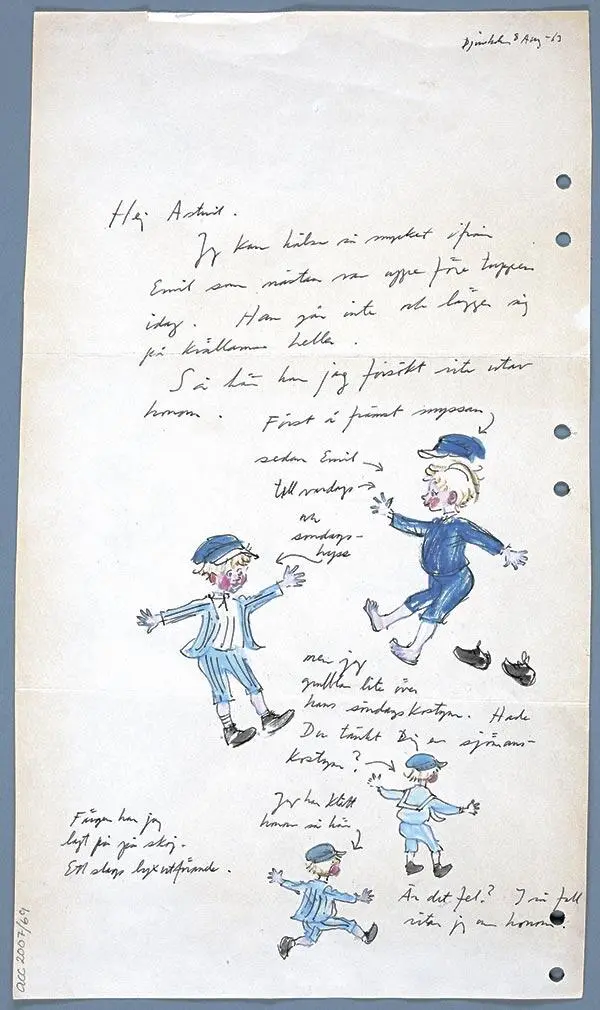 8 Aug -63
Hej Astrid.
Jag kan hälsa så mycket ifrån
Emil som nästan var uppe före tuppen
idag. Han går inte och lägger sig
på kvällarna heller.
Så här har jag försökt rita utav
honom.
Först å främst myssan
sedan Emil
till vardags
och
söndags-
hyss
men jag
grubblar lite över
hans söndagskostym. Hade
Du tänkt Dig en sjömans-
kostym?
Jag har klätt
honom så här
Färgen har jag
lagt på på skoj.
Ett slags lyxutförande.
Är det fel? I så fall
ritar jag om honom.
acc 2007/69